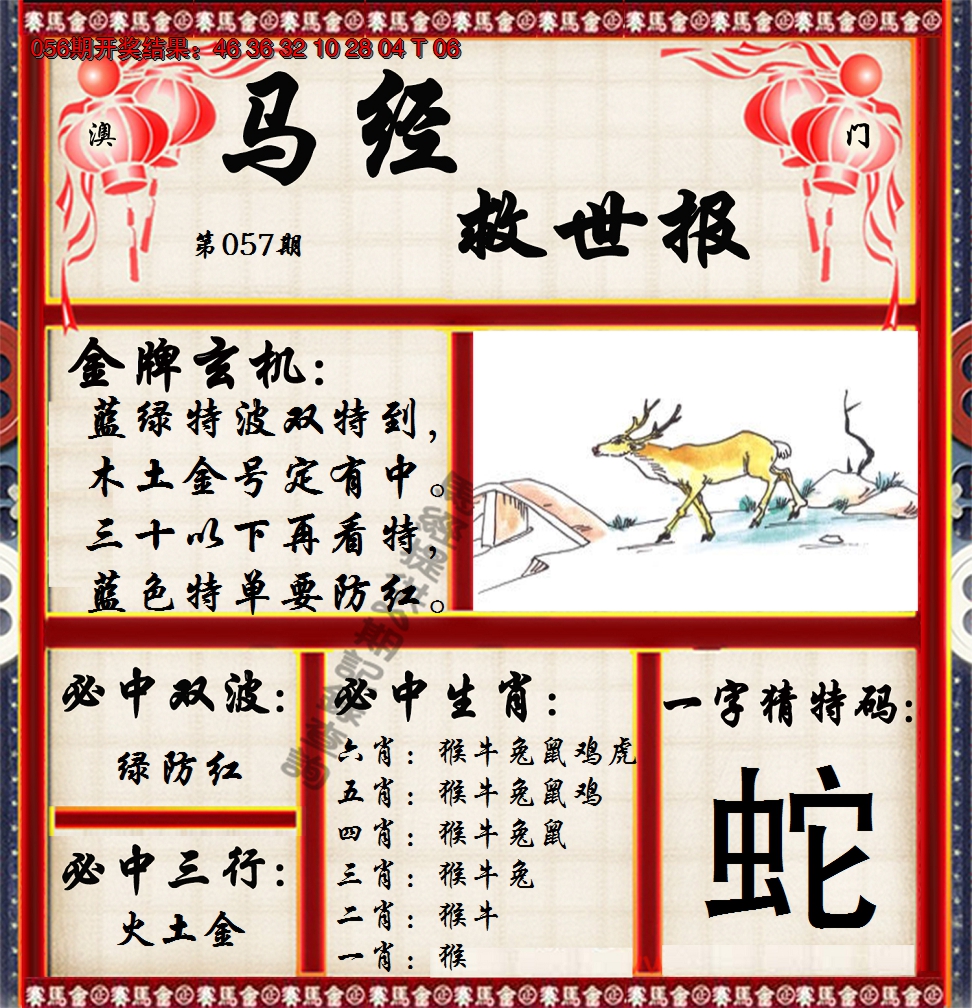 056期开奖结果：46 36 32 10 28 04 T 06
澳
门
马经
救世报
第057期
金牌玄机：
蓝绿特波双特到，
木土金号定有中。
三十以下再看特，
蓝色特单要防红。
必中双波：
绿防红
必中三行：
火土金
必中生肖：
六肖：猴牛兔鼠鸡虎
五肖：猴牛兔鼠鸡
四肖：猴牛兔鼠
三肖：猴牛兔
二肖：猴牛
一肖：猴
一字猜特码：
蛇